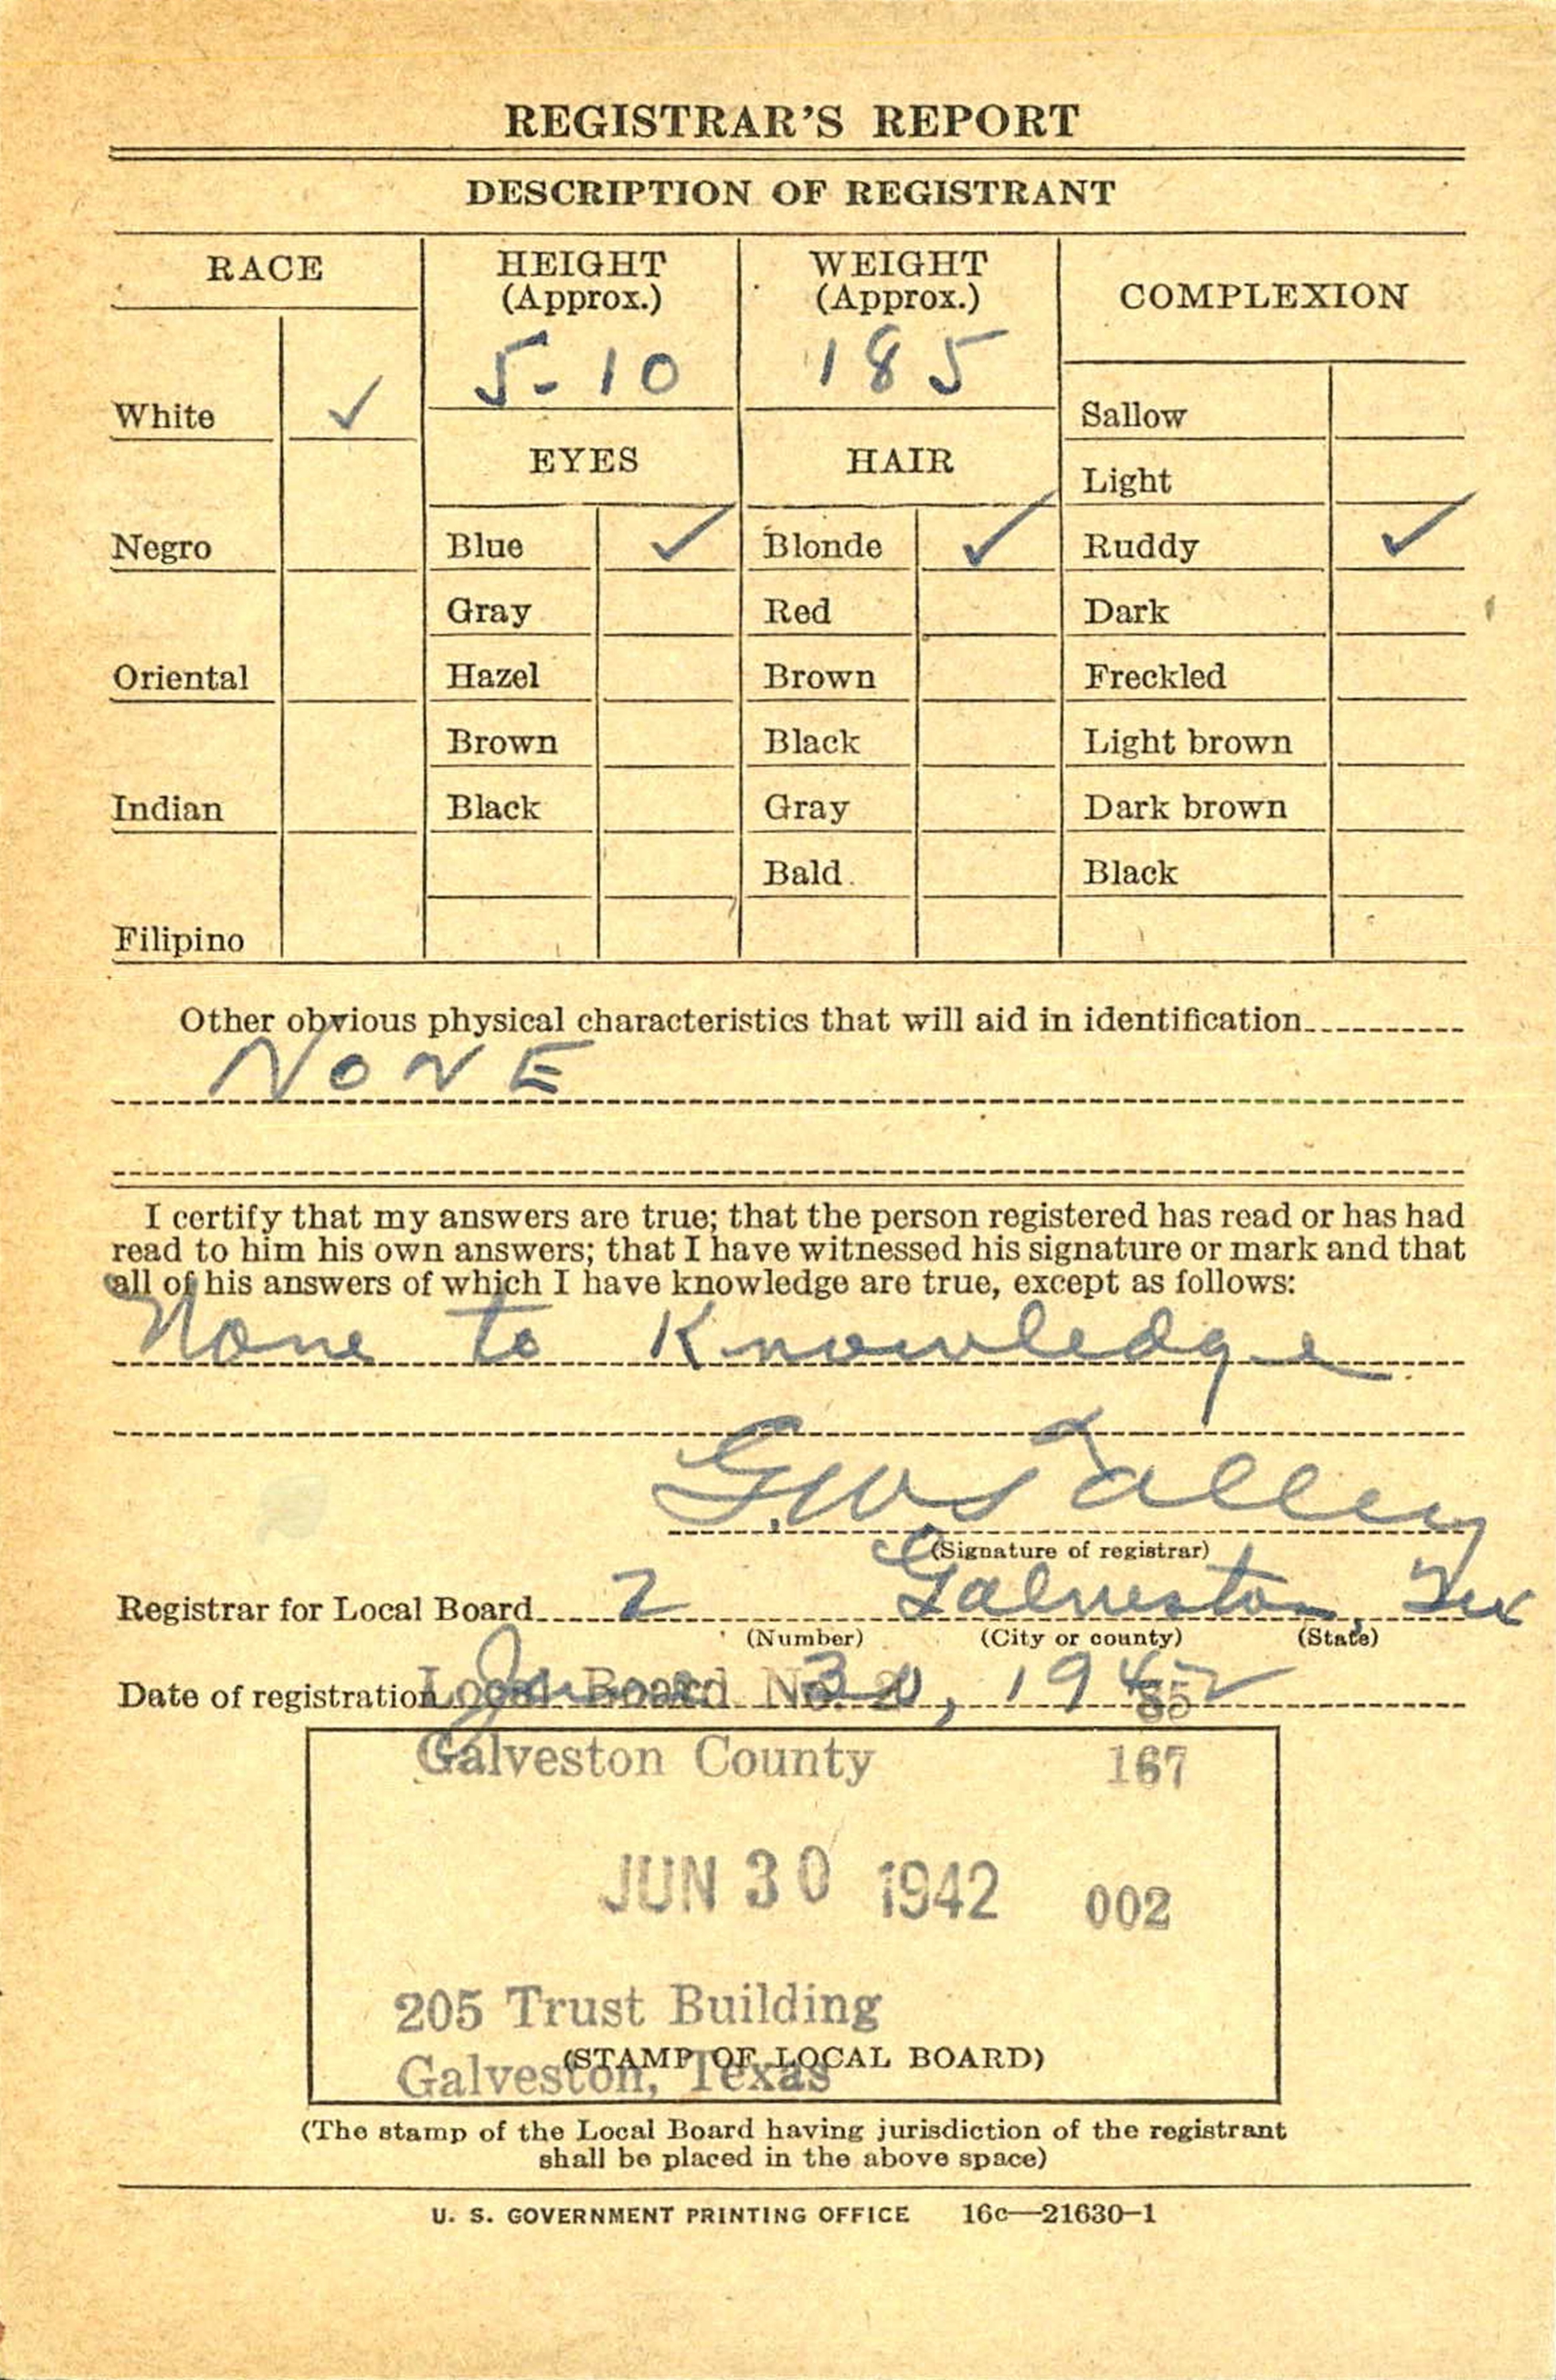 REGISTRAR'S REPORT
DESCRIPTION OF REGISTRANT
RACE
HEIGHT
(Approx.)
WEIGHT
(Approx.)
COMPLEXION
5-10
185
White ✓
Sallow
EYES
HAIR
Light
Negro
Blue ✓
Blonde ✓
Ruddy ✓
Gray
Red
Dark
Oriental
Hazel
Brown
Freckled
Brown
Black
Light brown
Indian
Black
Gray
Dark brown
Bald
Black
Filipino
Other obvious physical characteristics that will aid in identification
NONE
I certify that my answers are true; that the person registered has read or has had
read to him his own answers; that I have witnessed his signature or mark and that
all of his answers of which I have knowledge are true, except as follows:
None to Knowledge
Talley
(Signature of registrar)
Registrar for Local Board 2 Galveston, Tex
(Number) (City or county) (State)
Date of registration June 30, 1942
Local Board No. 2 85
Galveston County 167
JUN 30 1942 002
205 Trust Building
(STAMP OF LOCAL BOARD)
Galveston, Texas
(The stamp of the Local Board having jurisdiction of the registrant
shall be placed in the above space)
U. S. GOVERNMENT PRINTING OFFICE 16c—21630-1